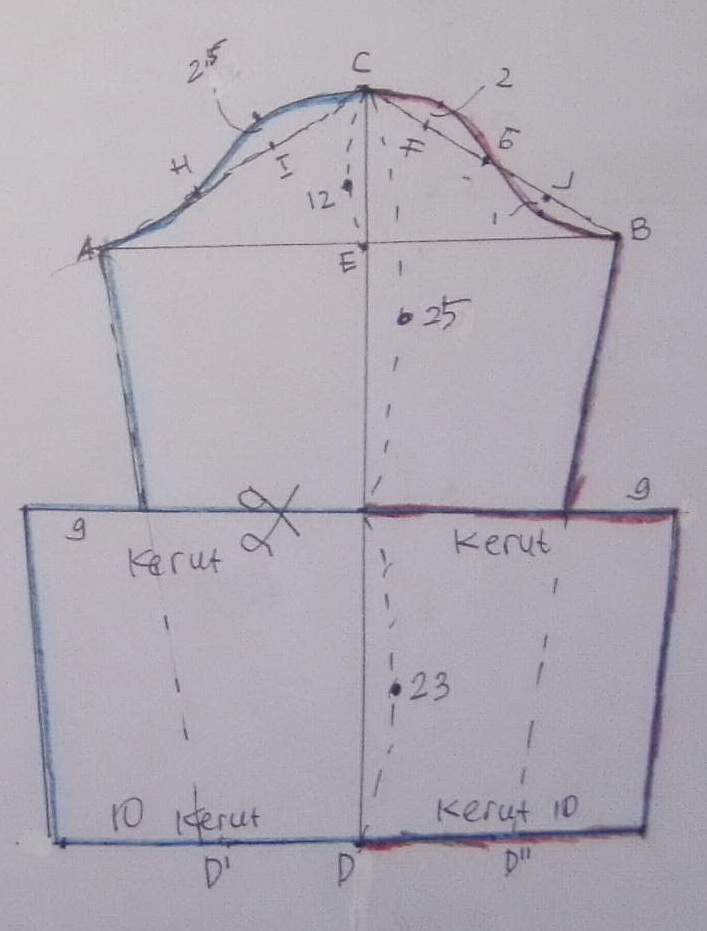 C
2,5
2
H
I
F
G
J
12
1
A
E
B
25
9
9
Kerut
Kerut
23
10 Kerut
Kerut 10
D'
D
D"